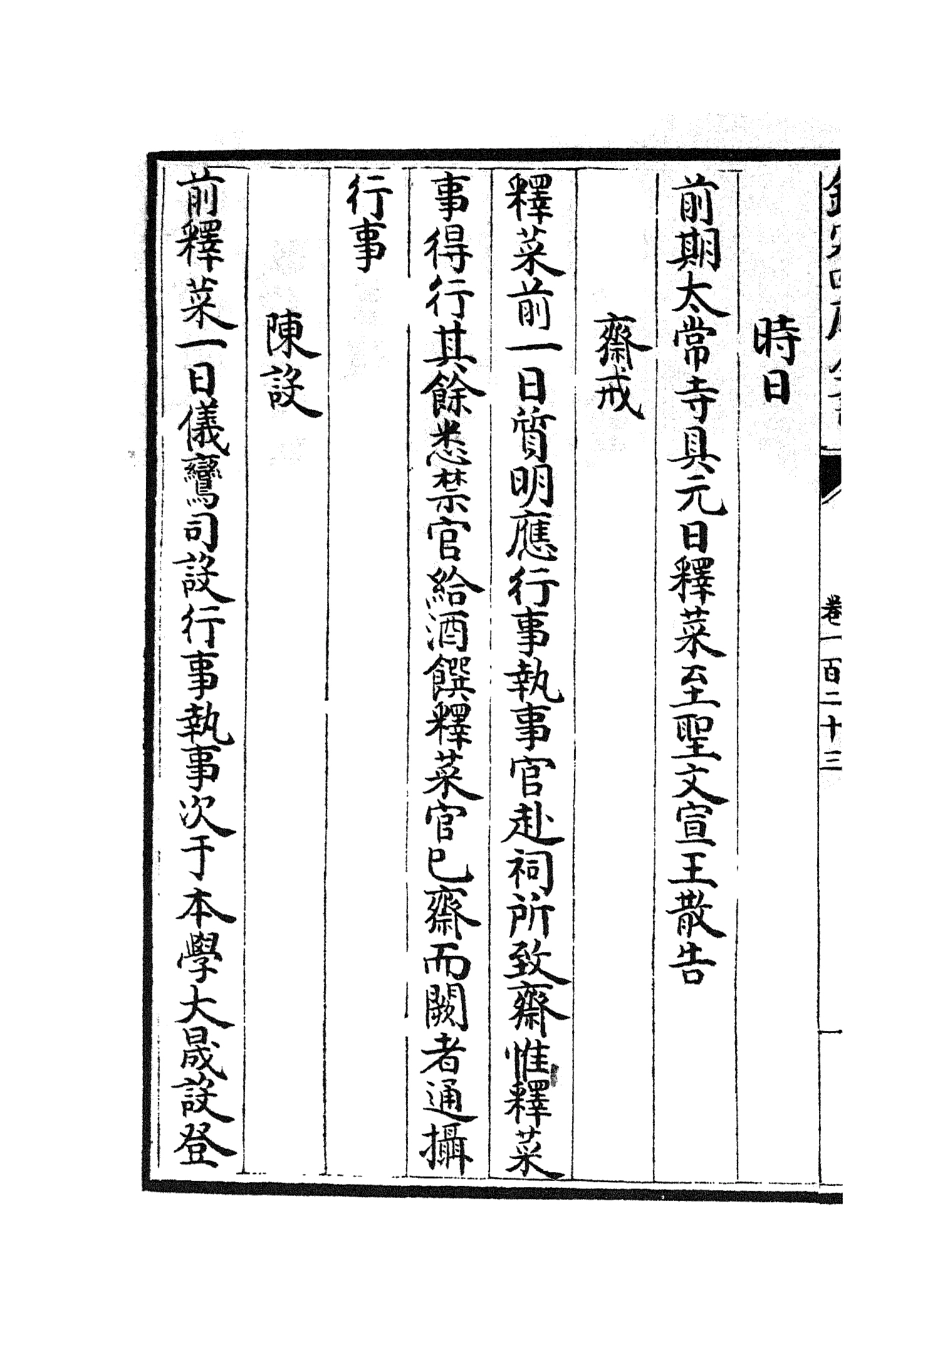 時日
前期太常寺具元日釋菜至聖文宣王散告
齋戒
釋菜前一日質明應行事執事官赴祠所致齋惟釋菜
事得行其餘悉禁官給酒饌釋菜官已齋而闕者通攝
行事
陳設
前釋菜一日儀鸞司設行事執事次于本學大晟設登
卷一百二十三